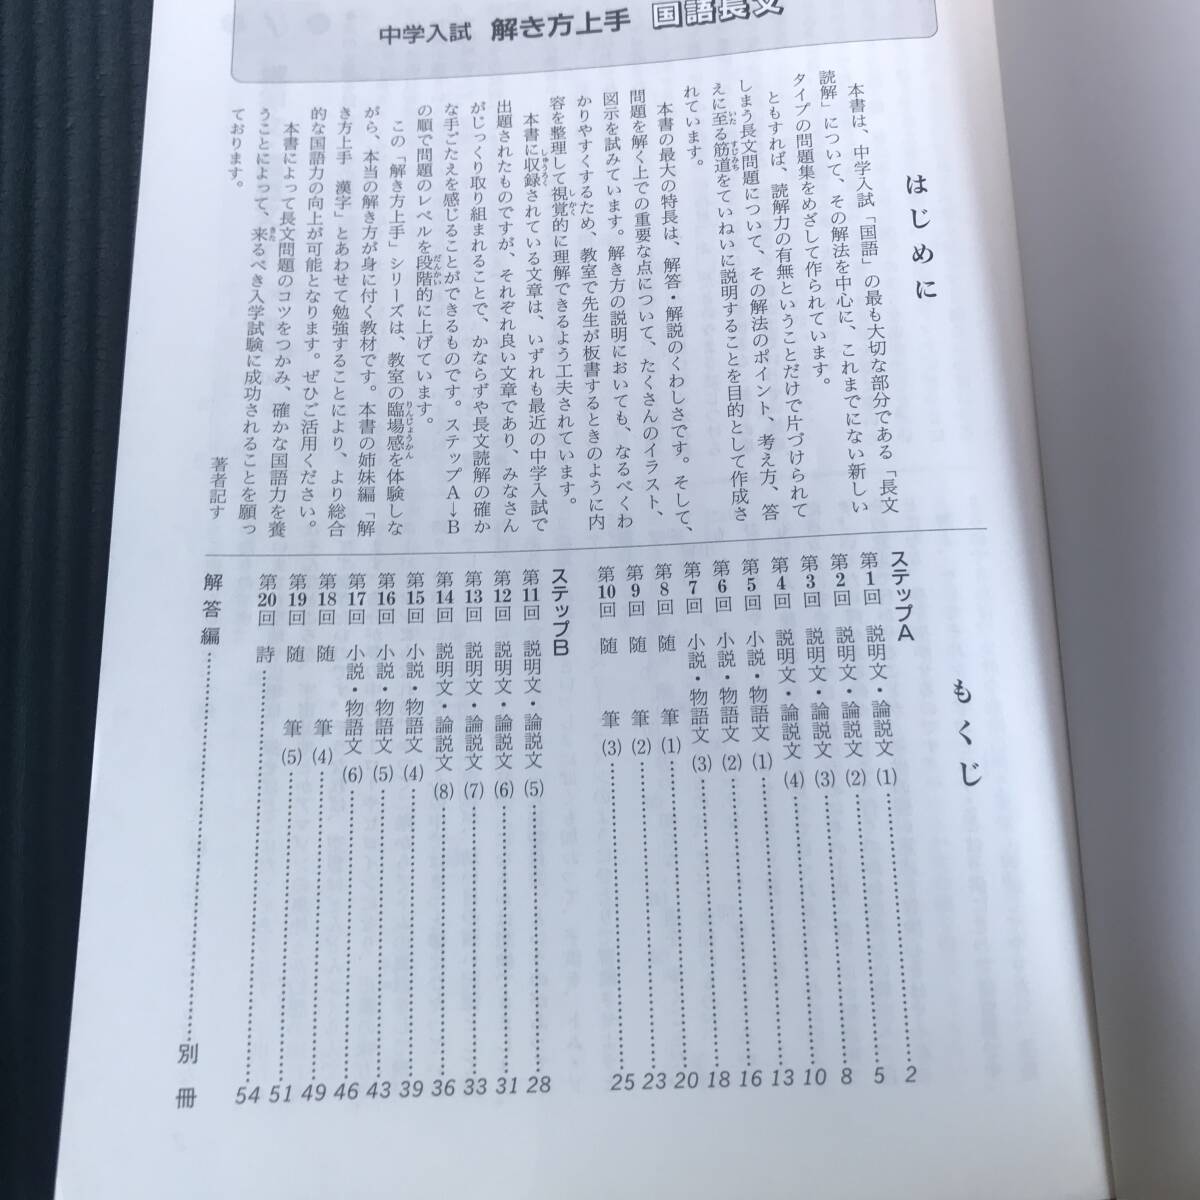 中学入試 解き方上手 国語長文
はじめに
本書は、中学入試「国語」の最も大切な部分である「長文
読解」について、その解法を中心に、これまでにない新しい
タイプの問題集をめざして作られています。
ともすれば、読解力の有無ということだけで片づけられて
しまう長文問題について、その解法のポイント、考え方、答
えに至る筋道をていねいに説明することを目的として作成さ
れています。
本書の最大の特長は、解答・解説のくわしさです。そして、
問題を解く上での重要な点について、たくさんのイラスト、
図示を試みています。解き方の説明においても、なるべくわ
かりやすくするため、教室で先生が板書するときのように内
容を整理して視覚的に理解できるよう工夫されています。
本書に収録されている文章は、いずれも最近の中学入試で
出題されたものですが、それぞれ良い文章であり、みなさん
がじっくり取り組まれることで、かならずや長文読解の確か
な手ごたえを感じることができるものです。ステップA→B
の順で問題のレベルを段階的に上げています。
この「解き方上手」シリーズは、教室の臨場感を体験しな
がら、本当の解き方が身に付く教材です。本書の姉妹編「解
き方上手 漢字」とあわせて勉強することにより、より総合
的な国語力の向上が可能となります。ぜひご活用ください。
本書によって長文問題のコツをつかみ、確かな国語力を養
うことによって、来るべき入学試験に成功されることを願っ
ております。
著者記す
もくじ
ステップA
第1回 説明文・論説文(1)……2
第2回 説明文・論説文(2)……5
第3回 説明文・論説文(3)……8
第4回 説明文・論説文(4)……10
第5回 小説・物語文(1)……13
第6回 小説・物語文(2)……16
第7回 小説・物語文(3)……18
第8回 随筆(1)……20
第9回 随筆(2)……23
第10回 随筆(3)……25
ステップB
第11回 説明文・論説文(5)……28
第12回 説明文・論説文(6)……31
第13回 説明文・論説文(7)……33
第14回 説明文・論説文(8)……36
第15回 小説・物語文(4)……39
第16回 小説・物語文(5)……43
第17回 小説・物語文(6)……46
第18回 随筆(4)……49
第19回 随筆(5)……51
第20回 詩……54
解答編……別冊